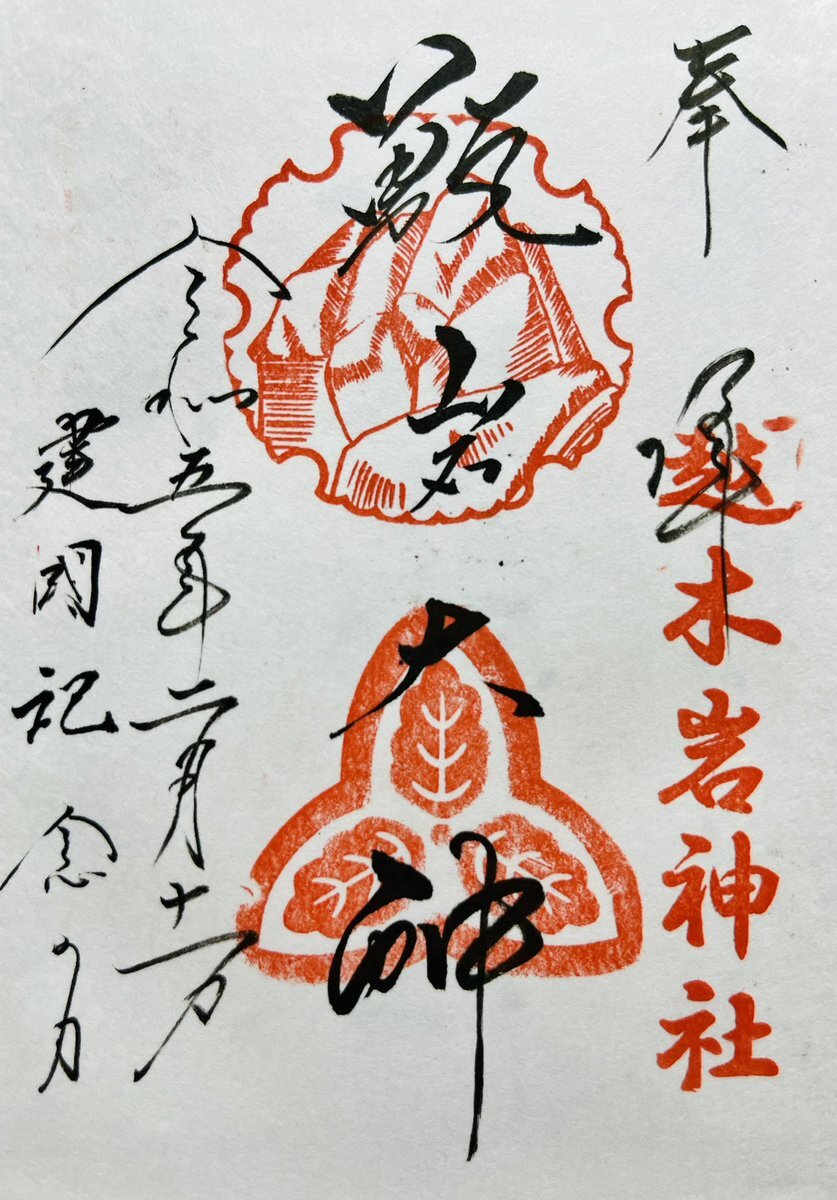 奉拝
越木岩神社
甑岩大神
令和五年二月十一日
建国記念の日